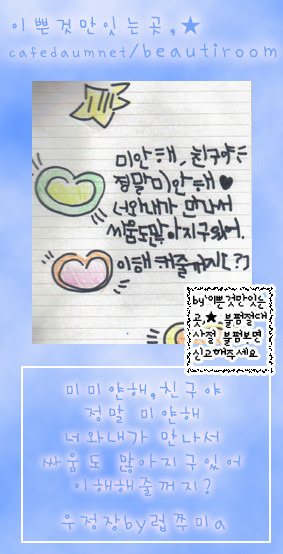 이쁜것만잇는곳,★
cafedaumnet/beautiroom
미안해, 친구야
정말미안해♥
너와내가 만나서
싸움도많아지구있어.
이해해줄꺼지?
by이쁜것만잇는
곳★ 불펌절대
사절 불펌보면
신고해주세요
미미얀해,친구야
정말 미얀해
너와내가 만나서
싸움도 많아지구있어
이해해줄꺼지?
우정장by럽쭈미a